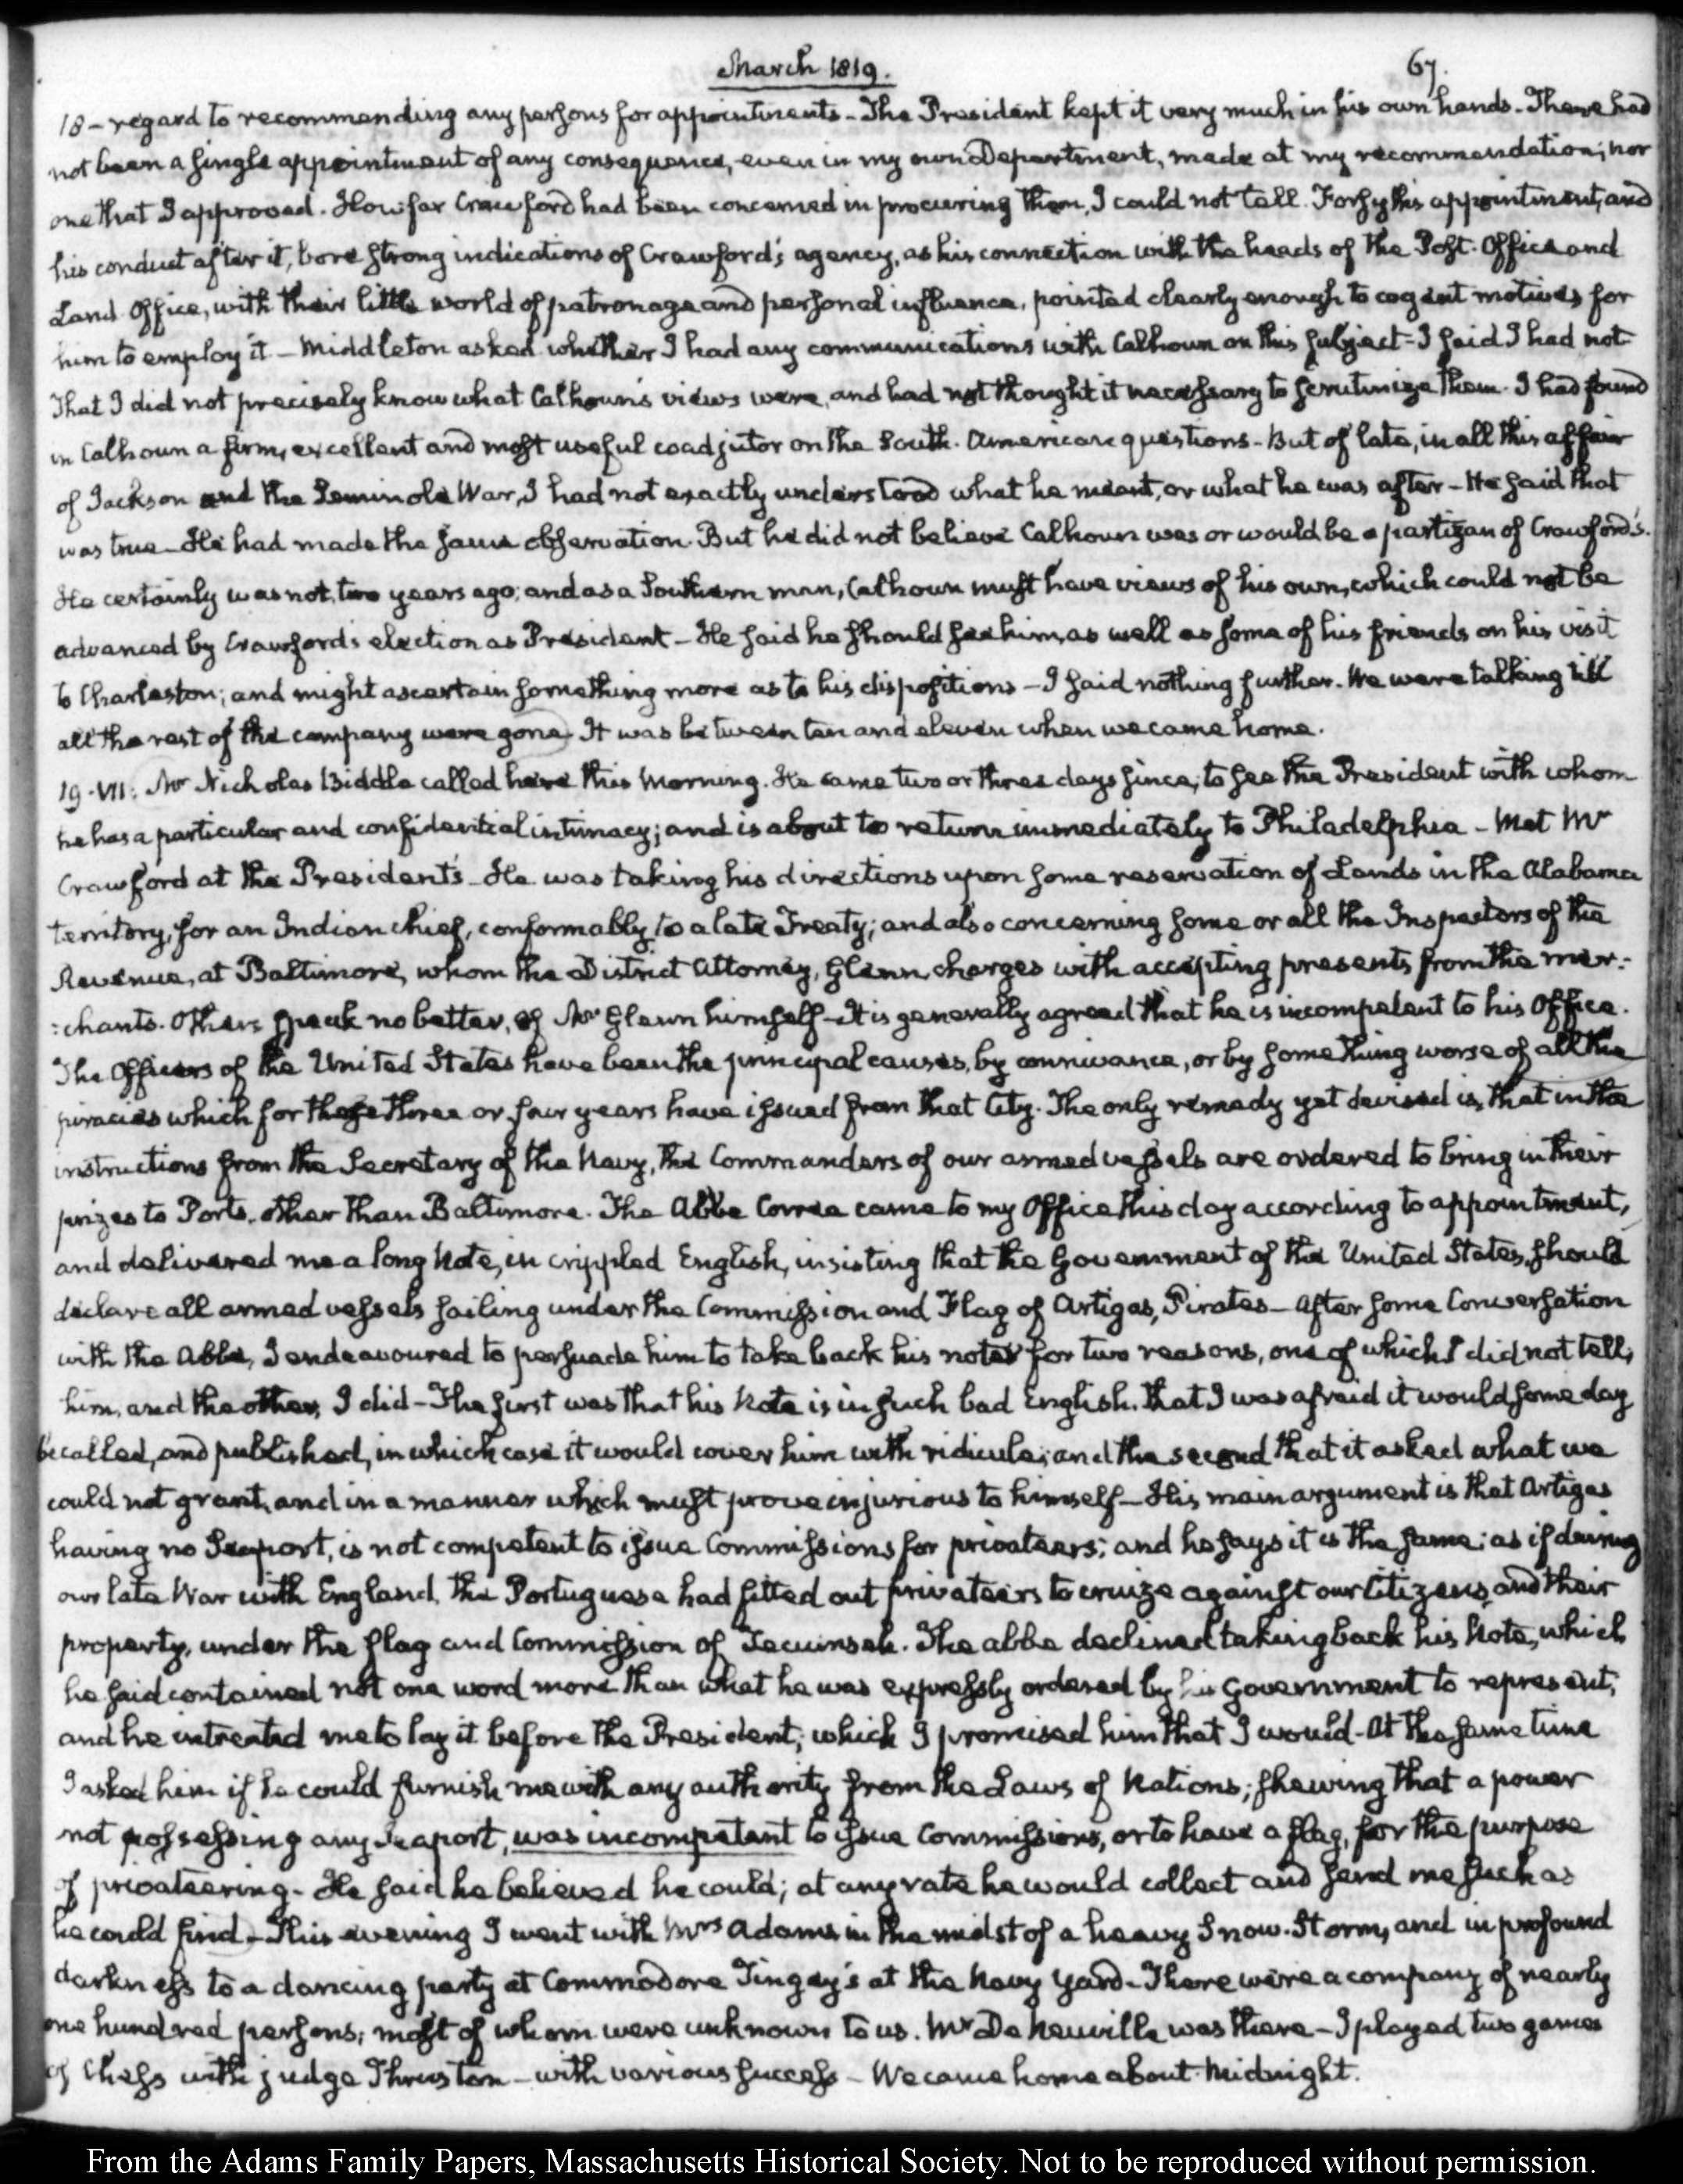 March 1819.
67.
18 - regard to recommending any persons for appointments - The President kept it very much in his own hands. There had
not been a single appointment of any consequence, even in my own Department, made at my recommendation; nor
one that I approved. How far Crawford had been concerned in procuring them, I could not tell. Forsyth's appointment, and
his conduct after it, bore strong indications of Crawford's agency, as his connection with the heads of the Post-Office and
Land Office, with their little world of patronage and personal influence, pointed clearly enough to cogent motives for
him to employ it - Middleton asked whether I had any communications with Calhoun on this subject - I said I had not
That I did not precisely know what Calhoun's views were, and had not thought it necessary to scrutinize them. I had found
in Calhoun a firm, excellent and most useful coadjutor on the South-American questions - But of late, in all this affair
of Jackson and the Seminole War, I had not exactly understood what he meant, or what he was after - He said that
was true - He had made the same observation. But he did not believe Calhoun was or would be a partizan of Crawford's.
He certainly was not, two years ago; and as a Southern man, Calhoun must have views of his own, which could not be
advanced by Crawford's election as President - He said he should see him, as well as some of his friends on his visit
to Charleston; and might ascertain something more as to his dispositions - I said nothing further. We were talking till
all the rest of the company were gone. It was between ten and eleven when we came home.
19. VII: Mr Nicholas Biddle called here this Morning. He came two or three days since, to see the President with whom
he has a particular and confidential intimacy; and is about to return immediately to Philadelphia - Met Mr
Crawford at the President's - He was taking his directions upon some reservation of Lands in the Alabama
territory, for an Indian chief, conformably to a late Treaty; and also concerning some or all the Inspectors of the
Revenue, at Baltimore, whom the District Attorney, Glenn, charges with accepting presents from the mer-
:chants. Others speak no better, of Mr Glenn himself - It is generally agreed that he is incompetent to his Office.
The Officers of the United States have been the principal causes, by connivance, or by something worse of all the
piracies which for these three or four years have issued from that City. The only remedy yet devised is, that in the
instructions from the Secretary of the Navy, the Commanders of our armed vessels are ordered to bring in their
prizes to Ports, other than Baltimore. The Abbé Correa came to my Office this day according to appointment,
and delivered me a long Note, in crippled English, insisting that the Government of the United States, should
declare all armed vessels sailing under the Commission and Flag of Artigas, Pirates - After some Conversation
with the Abbé, I endeavoured to persuade him to take back his note for two reasons, one of which I did not tell
him, and the other, I did - The first was that his Note is in such bad English, that I was afraid it would some day
be called, and published, in which case it would cover him with ridicule; and the second that it asked what we
could not grant, and in a manner which must prove injurious to himself - His main argument is that Artigas
having no Seaport, is not competent to issue Commissions for privateers; and he says it is the same; as if during
our late War with England, the Portuguese had fitted out privateers to cruize against our Citizens, and their
property, under the flag and Commission of Tecumseh. The abbé declined taking back his Note, which
he said contained not one word more than what he was expressly ordered by his Government to represent;
and he intreated me to lay it before the President; which I promised him that I would - At the same time
I asked him if he could furnish me with any authority from the Laws of Nations; shewing that a power
not possessing any Seaport, was incompetent to issue Commissions, or to have a flag, for the purpose
of privateering - He said he believed he could; at any rate he would collect and send me such as
he could find - This evening I went with Mrs Adams in the midst of a heavy Snow-Storm, and in profound
darkness to a dancing party at Commodore Tingey's at the Navy Yard - There were a company of nearly
one hundred persons; most of whom were unknown to us. Mr De Neuville was there - I played two games
of Chess with judge Thruston - with various success - We came home about Midnight.
From the Adams Family Papers, Massachusetts Historical Society. Not to be reproduced without permission.